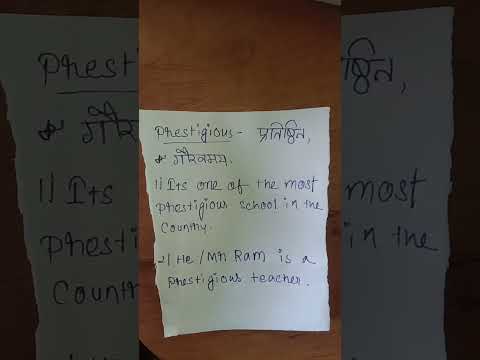 Prestigious - प्रतिष्ठित,
गौरवमय.
1) Its one of the most
prestigious school in the
Country.
2) He / Mr Ram is a
prestigious teacher.